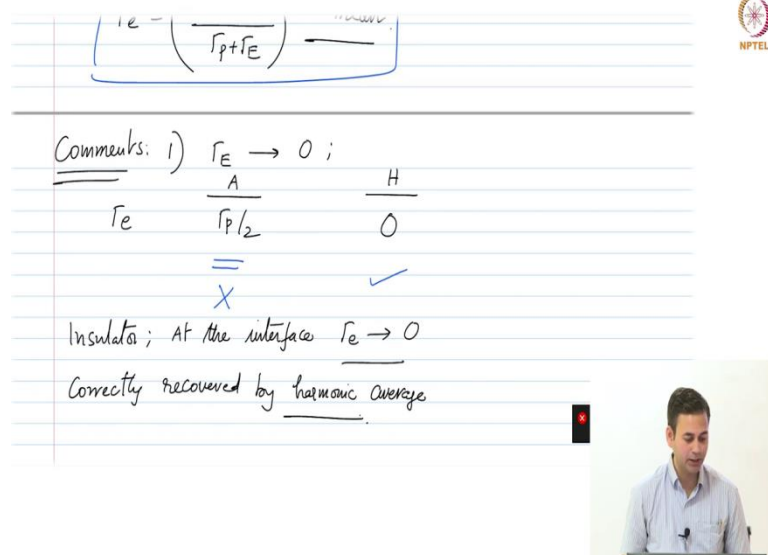 Γe = ( / Γp+ΓE ) mean
NPTEL
Comments: 1) ΓE → 0 ;
A H
Γe Γp/2 0
= ✓
X
Insulator ; At the interface Γe → 0
Correctly recovered by harmonic average.